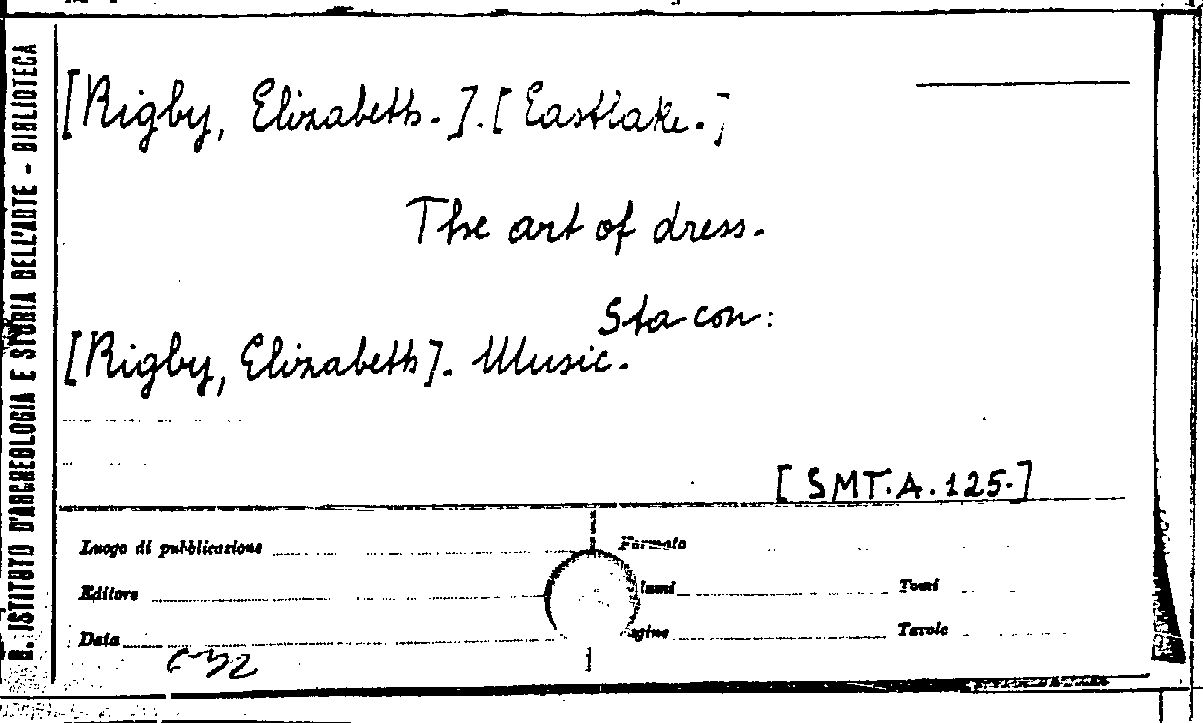 R. ISTITUTO D'ARCHEOLOGIA E STORIA DELL'ARTE - BIBLIOTECA
[Rigby, Elizabeth.].[Eastlake.]
The art of dress.
Sta con:
[Rigby, Elizabeth]. Music.
[SMT.A.125.]
Luogo di pubblicazione
Formato
Editore
lumi
Tomi
Data
agine
Tavole